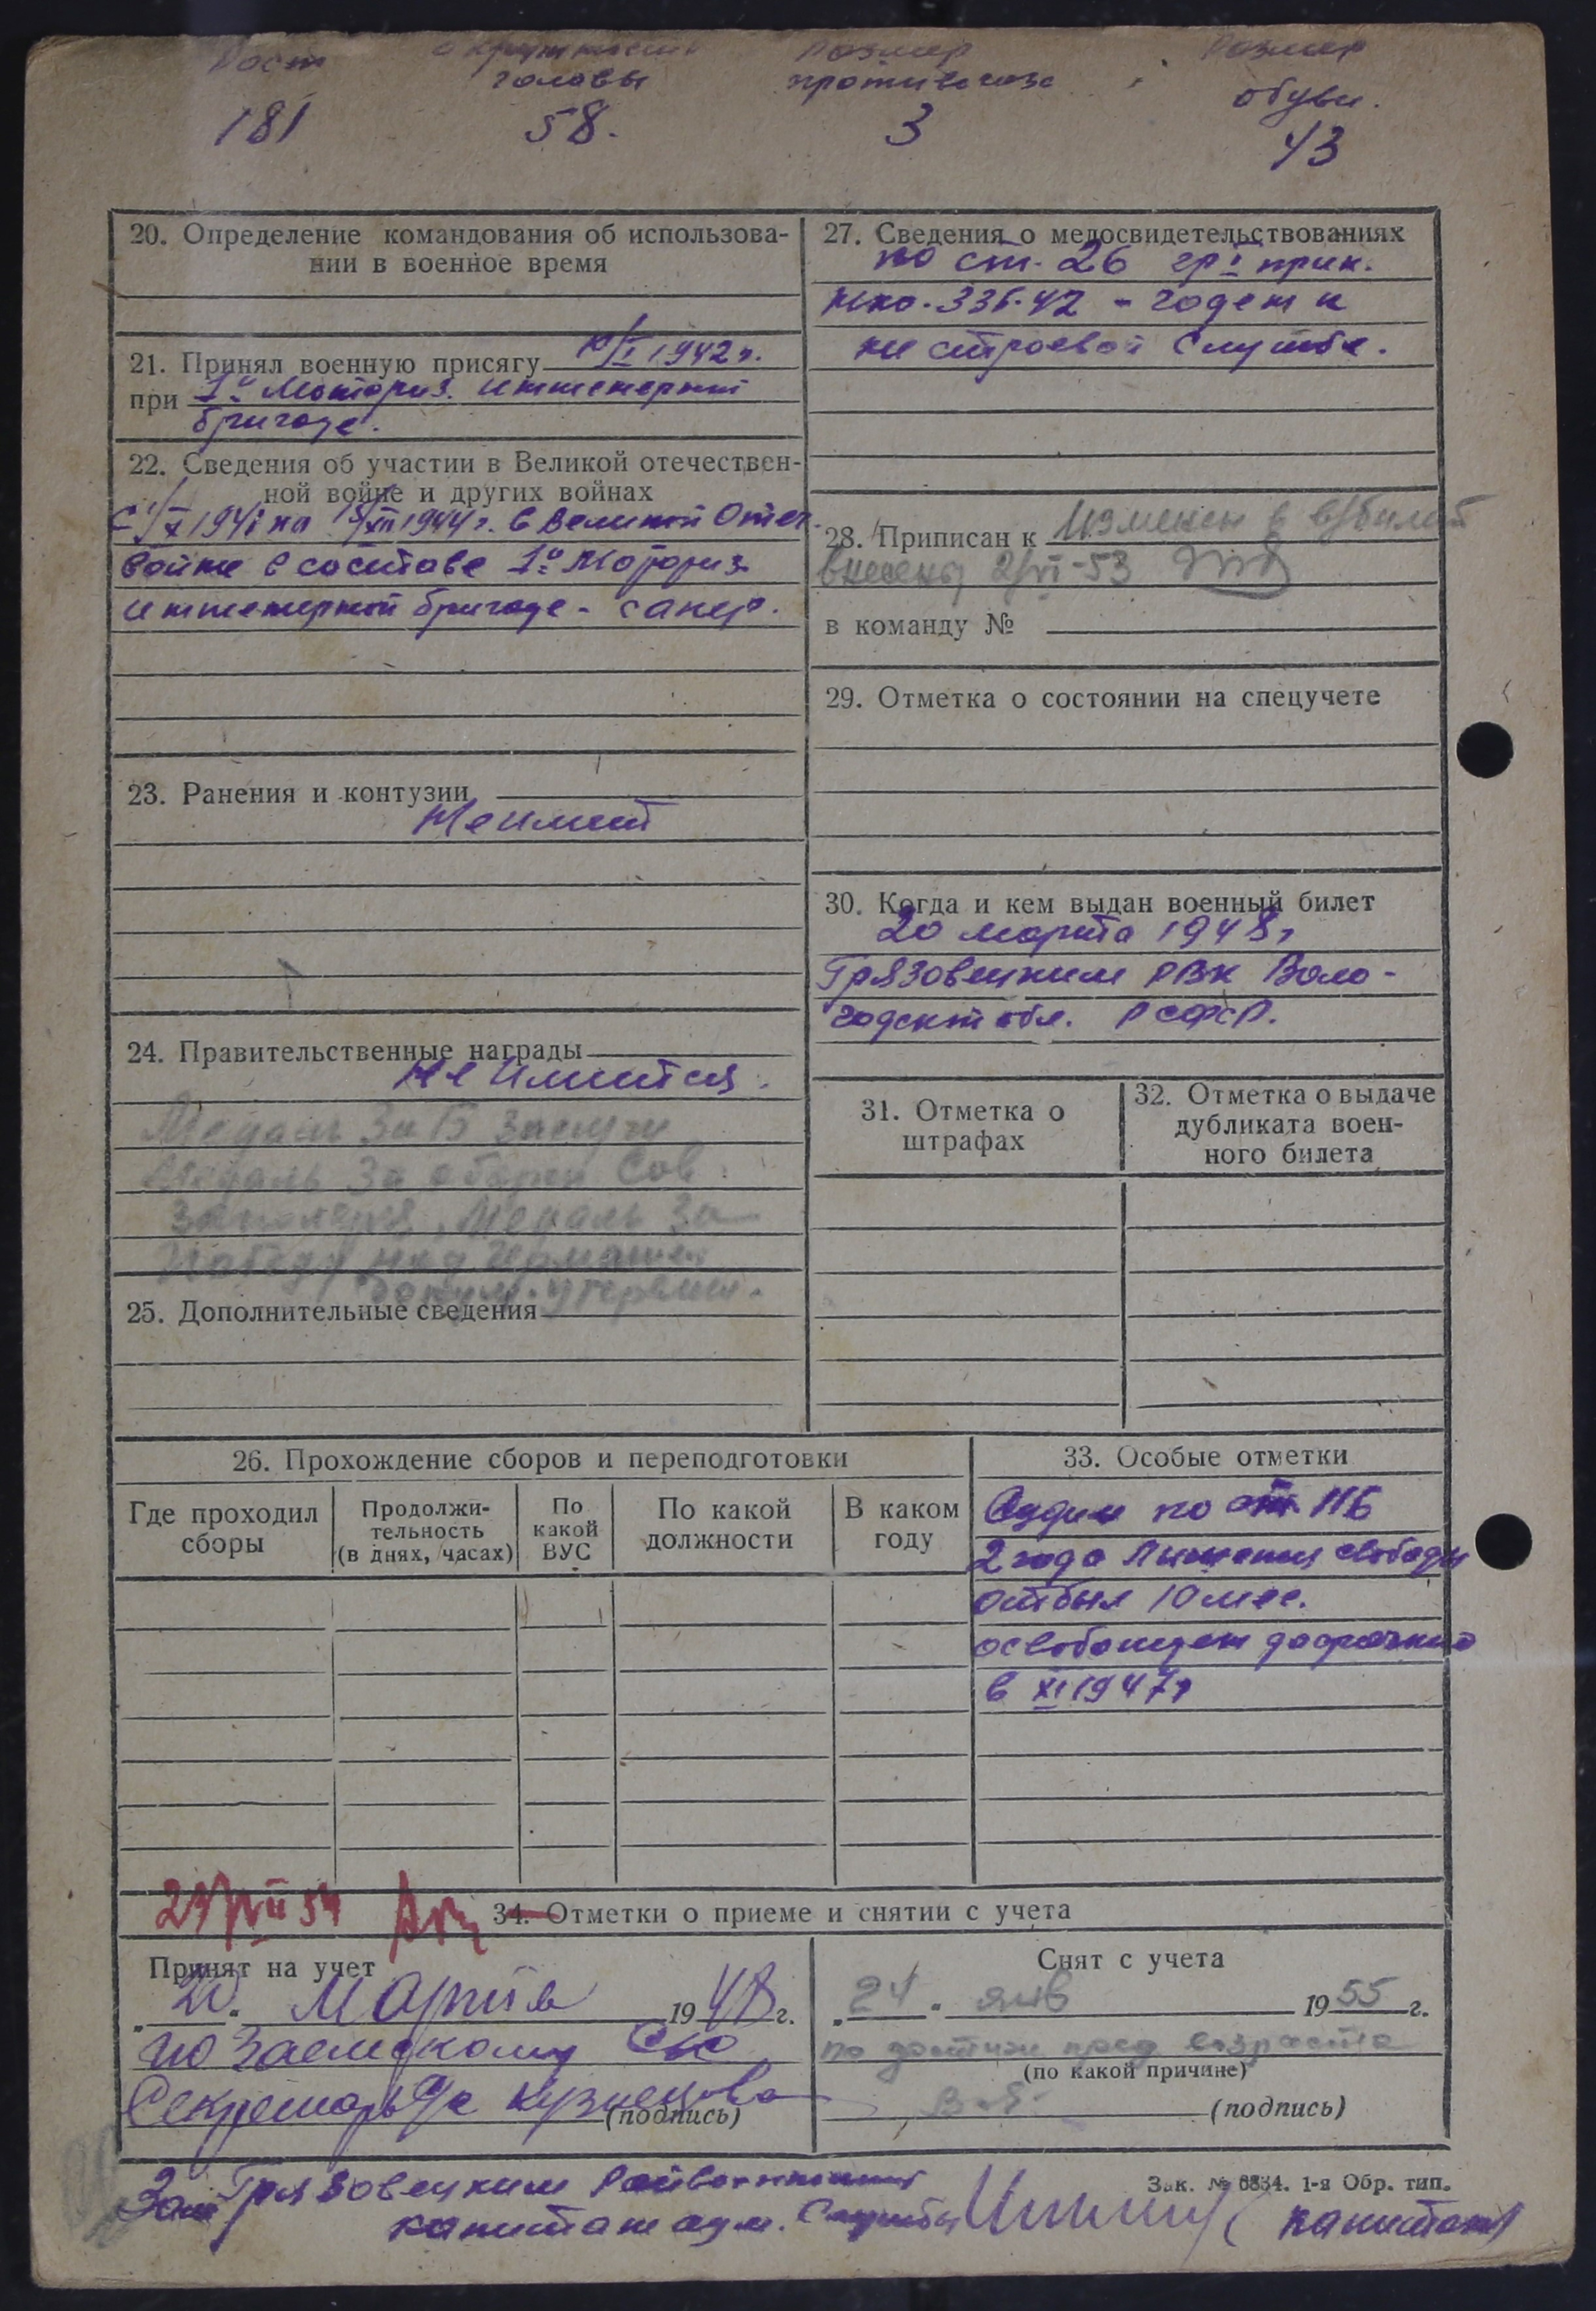 Рост
окружность
головы
размер
противогаза
размер
обуви.
181
58.
3
43
20. Определение командования об использова-
нии в военное время
21. Принял военную присягу 10/I 1942 г.
при 1й Моториз. инженерной
бригаде.
22. Сведения об участии в Великой отечествен-
ной войне и других войнах
1941 на 1944 г. в Великой Отеч.
войне в составе 1й Моториз
инженерной бригаде - сапер.
23. Ранения и контузии
Не имеет
24. Правительственные награды
Не имеется.
Медаль За Б Заслуги
Медаль За оборон Сов
Заполярья, Медаль За
Победу над Германией
докум. утеряны.
25. Дополнительные сведения
27. Сведения о медосвидетельствованиях
по ст. 26 гр I прик.
НКО. 336-42 - годен к
не строевой службе.
28. Приписан к Изменен в в/билет
внесены 2/VI-53
в команду №
29. Отметка о состоянии на спецучете
30. Когда и кем выдан военный билет
20 марта 1948 г
Грязовецким РВК Воло-
годской обл. РСФСР.
31. Отметка о
штрафах
32. Отметка о выдаче
дубликата воен-
ного билета
26. Прохождение сборов и переподготовки
Где проходил
сборы
Продолжи-
тельность
(в днях, часах)
По
какой
ВУС
По какой
должности
В каком
году
33. Особые отметки
Судим по ст. 116
2 года Лишения свободы
отбыл 10 мес.
освобожден досрочно
в XI 1947 г
VII 54
34. Отметки о приеме и снятии с учета
Принят на учет
„20“ Марта 1948 г.
по Заемскому С/с
Секретарь с/с Кузнецова
(подпись)
Снят с учета
„24“ янв 1955 г.
по достиж пред возраста
(по какой причине)
(подпись)
Зак. № 6834. 1-я Обр. тип.
Зам Грязовецким Райвоенкома
капитан адм. Службы
капитан